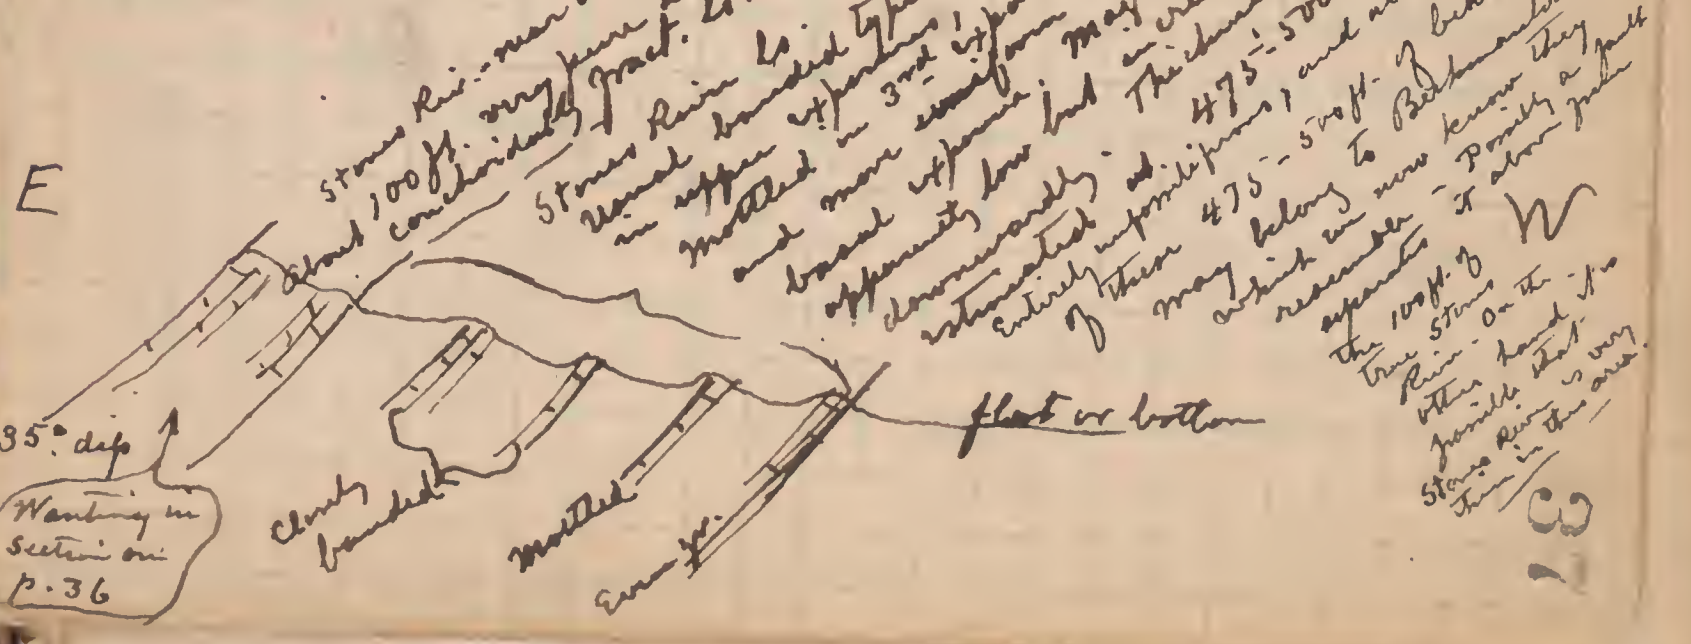 E
Stones Riv. - near
about 100 ft. very pure
conchoidally fract. Ls.
Stones River Ls.
usual banded type
in upper exposures,
mottled in 3rd expo
and more uniform
basal exposure. May
apparently low but in
downwardly. Thickness
estimated at 475 - 500
Entirely unfossiliferous, and
of these 475 - 500 ft. of beds
may belong to Beekmantown
which we now know they
resemble - Possibly a fault
separates it above from
the 100 ft. of
true Stones
River. On the
other hand it is
possible that
Stones River is very
thin in this area.
W
35° dip
Wanting in
section on
p. 36
Closely
banded
Mottled
Even gr.
flat or bottom
37